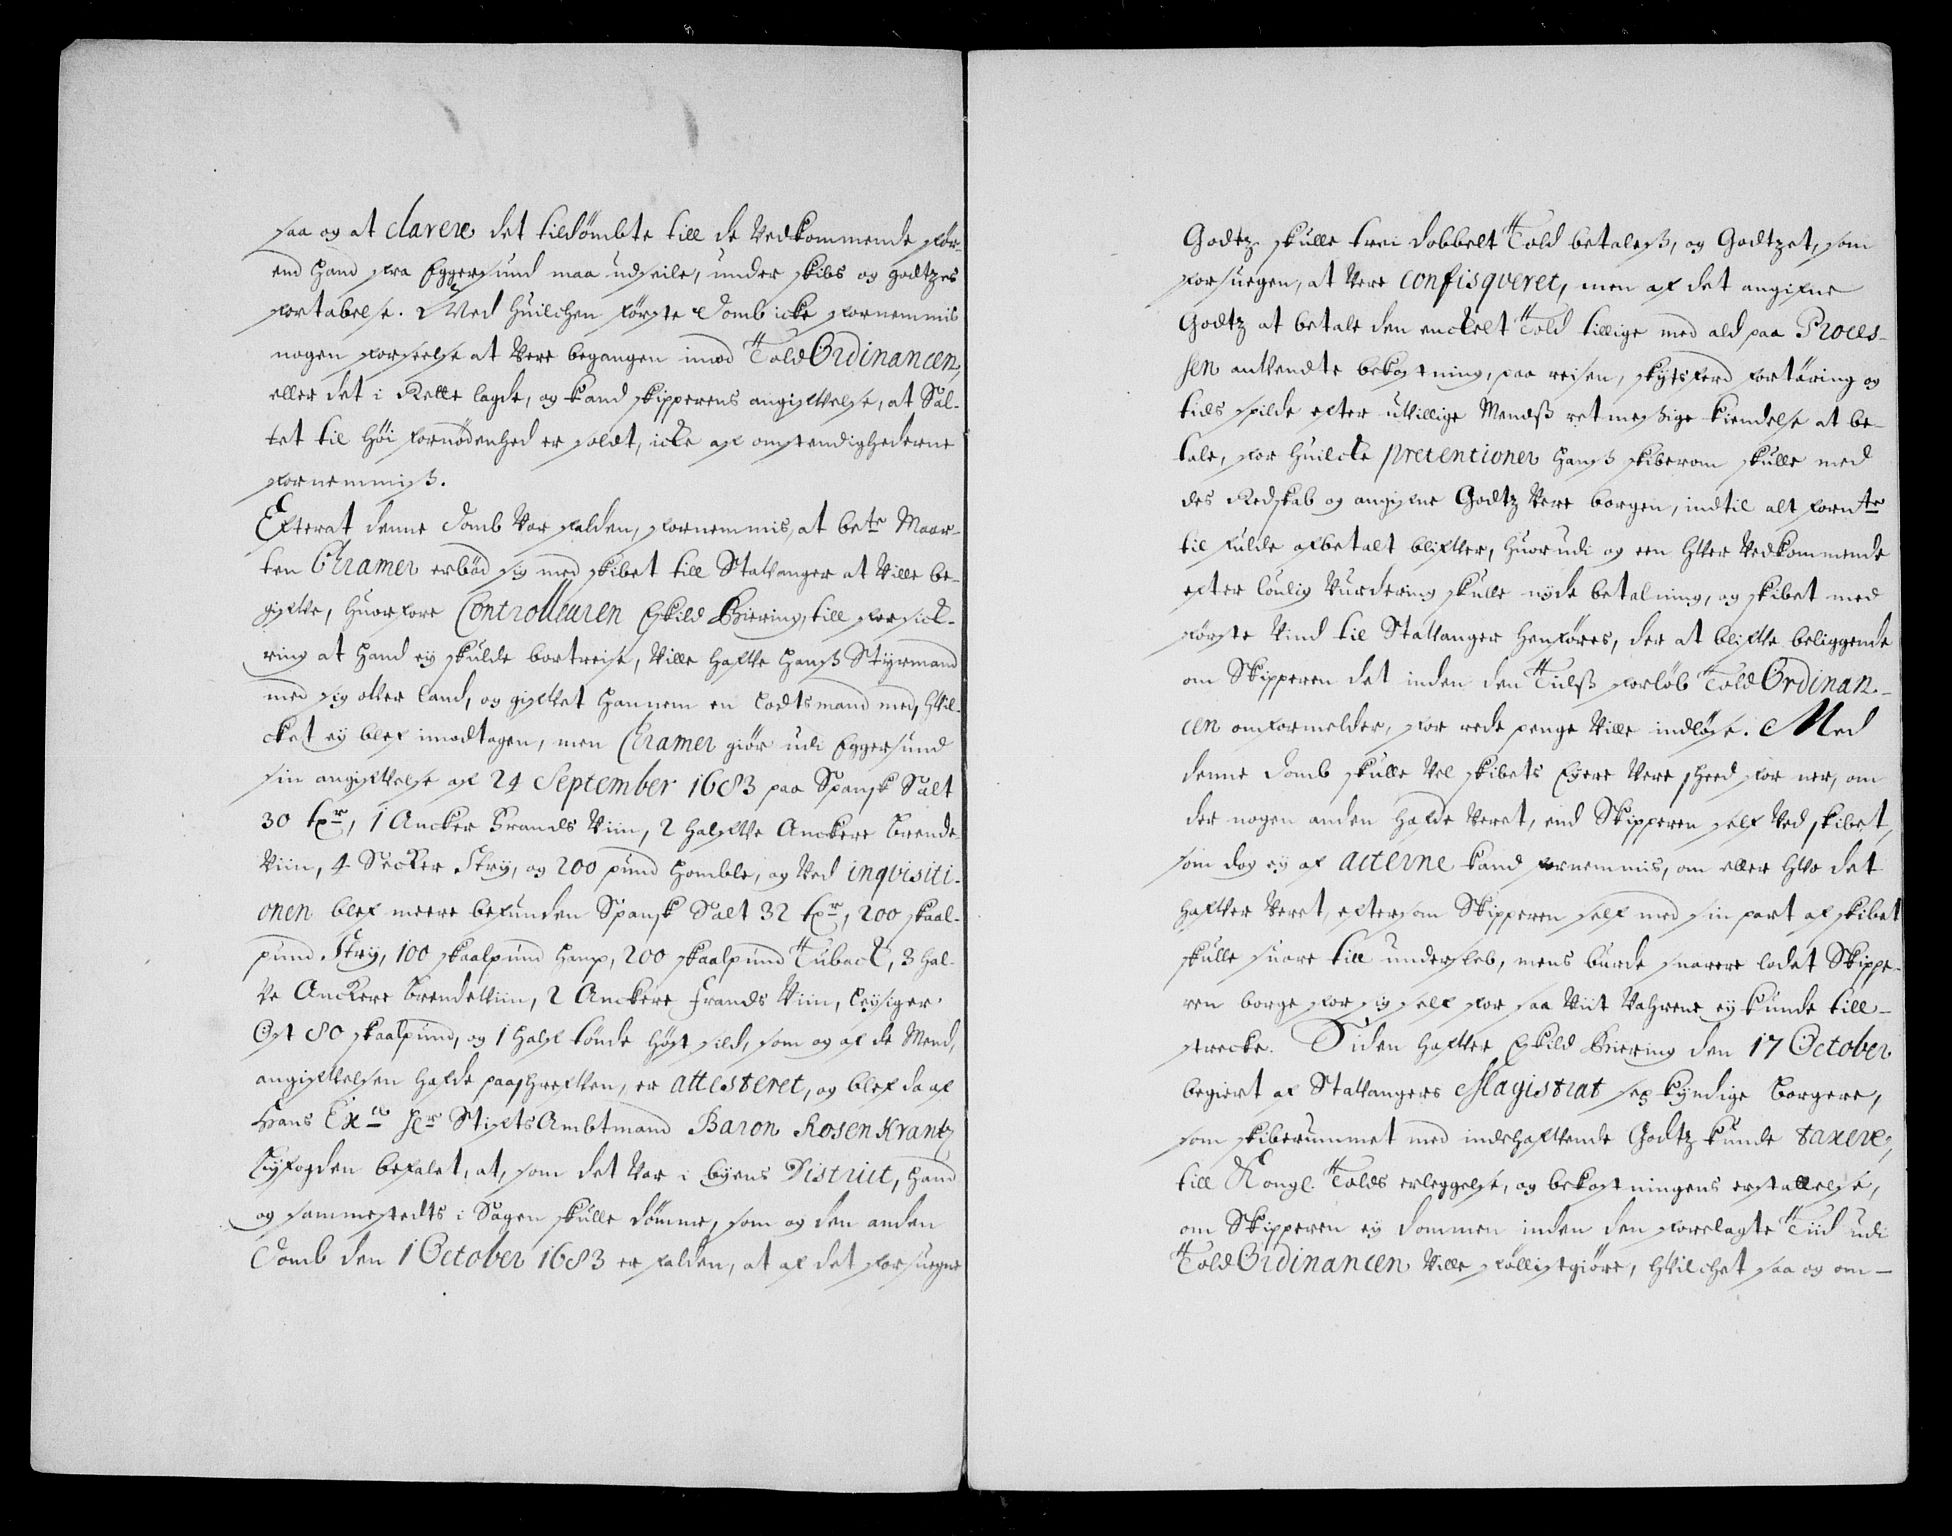 saa og at clarere det tildömbte till de Vedkommende for-
end Hand fra Eggersund maa udseile, under skibs og godtzes
fortabelse. Ved huilchen förste Domb icke fornemmis
nogen forseelse at Vere begangen imod Told Ordinancen,
eller det i Rette lagde, og kand skipperens angiffvelse, at Sal-
tet til höi fornödenhed er soldt, icke af omstendighederne
fornemmiß.
Efterat denne Domb Var falden, fornemmis, at bete Maar-
ten Cramer erböd sig med skibet till Stavanger at Ville be-
giffve, huorfore Controlleuren Eskild Biering, till forsick-
ring at Hand ey skulde bortreise, Ville haffve hanß Styrmand
med sig offver land, og giffvet hannem en lodtsmand med, hvil-
cket ey blef imodtagen, men Cramer giör udi Eggersund
sin angiffvelse af 24 September 1683 paa Spansk Salt
30 tr, 1 Ancker Frands Viin, 2 halffve Anckere brende
Viin, 4 Secker Stry, og 200 pund Homble, og Ved inqvisiti-
onen blef meere befunden Spansk Salt 32 tr, 200 skaal-
pund Stry, 100 skaalpund Hamp, 200 skaalpund Tuback, 3 hal-
ve Anckere brendeViin, 2 Anckere Frands Viin,
Ost 80 skaalpund, og 1 halff tönde höst sild, som og af de Mend,
angiffvelsen hafde paaskreffven, er attesteret, og blef da af
Hans Exce Hr StiftsAmbtmand Baron Rosenkrantz
Byfogden befalet, at, som det Var i byens District, Hand
og sammestedts i Sagen skulle dömme, som og den anden
Domb den 1 October 1683 er falden, at af det forsuegne
Godtz skulle trei dobbelt Told betaleß, og Godtzet, som
forsuegen, at Vere confisqveret, men af det angifne
Godtz at betale den enckelt Told tillige med ald paa Proces-
sen anVendte bekostning, paa reisen, skytsferd fortæring og
tids spilde efter uvillige Mendß retmessige kiendelse at be-
tale, for huilcke pretentioner hanß skiberom skulle med
des Redskab og angifne Godtz Vere borgen, indtil alt fornte
til fulde afbetalt bliffver, huorudi og een hver Vedkommende
efter loulig Vurdering skulle nyde betalning, og skibet med
förste Vind til Stavanger henföres, der at bliffve beliggende
om Skipperen det inden den Tidß forlöb Told Ordinan-
cen omformelder, for rede penge Ville indlöse. Med
denne Domb skulle Vel skibets Eyere Vere skeed for ner, om
der nogen anden hafde Veret, end Skipperen self Ved skibet,
som dog ey af acterne kand fornemmis, om eller hvo det
haffver Veret, eftersom Skipperen self med sin part af skibet
skulle suare till undersleb, mens burde snarere ladet Skippe-
ren borge for sig self for saa Viit Vahrene ey kunde till-
strecke. Siden haffver Eskild Biering den 17 October
begiert af Stavangers Magistrat sex kyndige borgere,
som skiberummet med indehaffvende Godtz kunde taxere,
till Kongl. Tolds erleggelse, og bekostningens erstattelse,
om Skipperen ey dommen inden den forelagte Tiid udi
Told Ordinancen Ville følistgiöre, hvilchet saa og om-